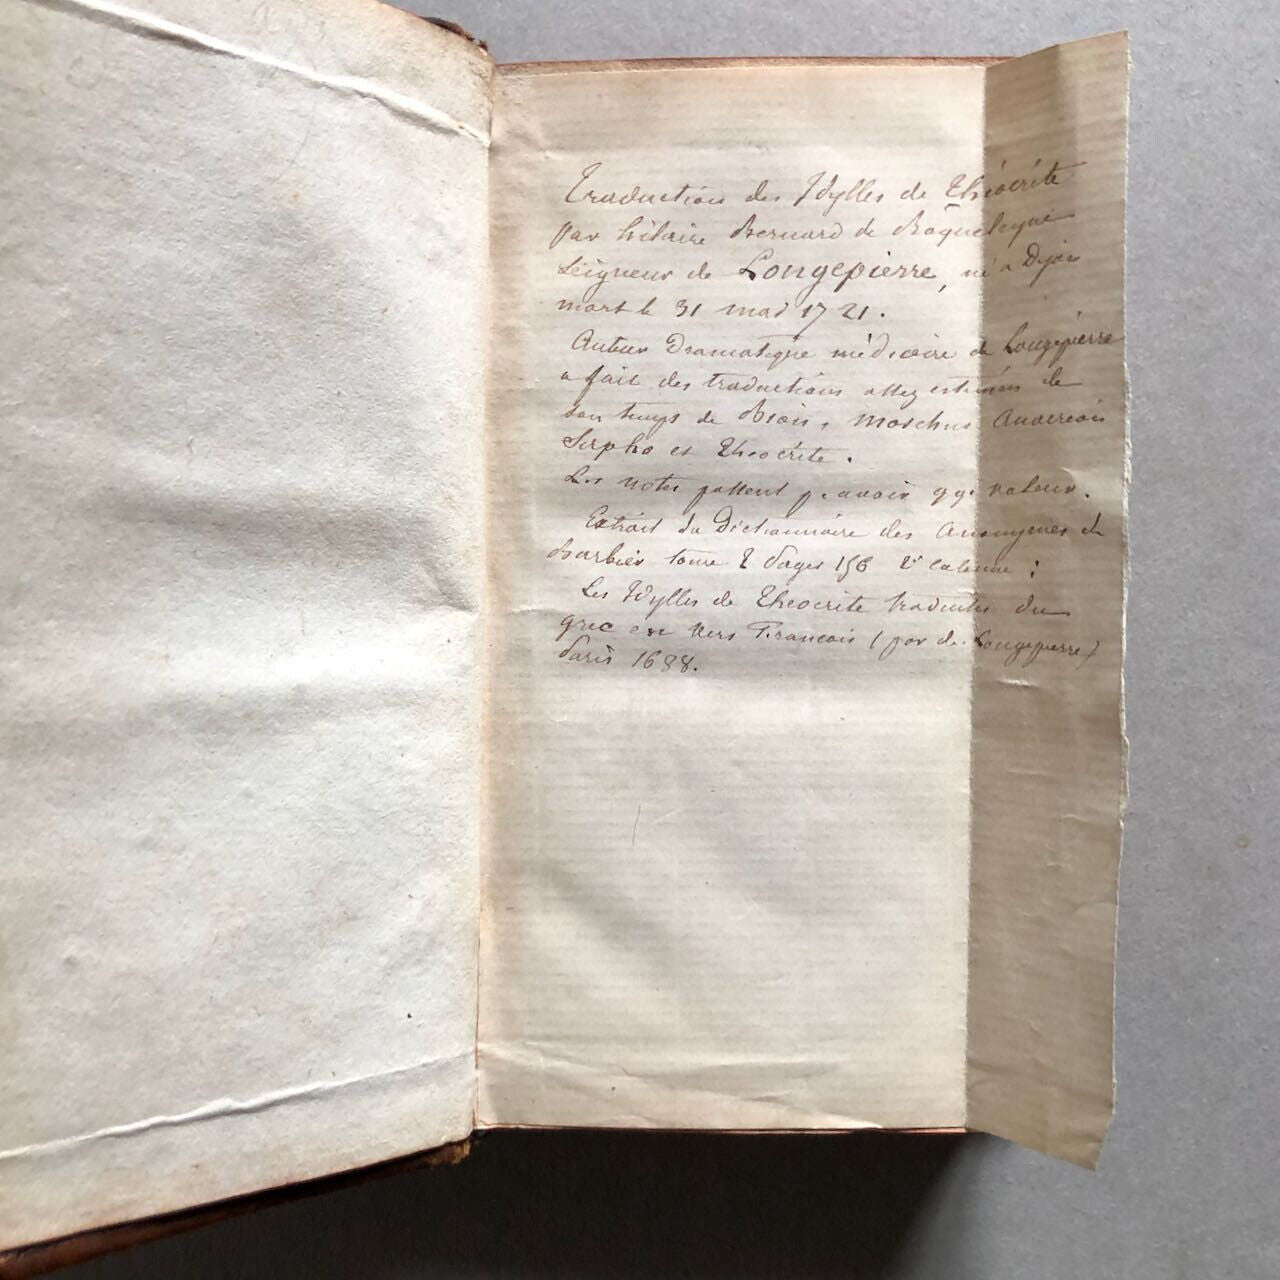 Traduction des Idylles de Théocrite
par hilaire Bernard de Roqueleyne
Seigneur de Longepierre, né a Dijon
mort le 31 mas 1721.
Auteur Dramatique médiocre de Longepierre
a fait des traductions assez estimées de
son temps de Bion, Moschus Anacréon
Sapho et Théocrite.
Les notes passent p. avoir qq. valeur.
Extrait du Dictionnaire des Anonymes de
Barbier tome 2 Pages 156 2e colonne :
Les Idylles de Theocrite traduites du
grec en vers Francais (par de Longepierre)
Paris 1688.